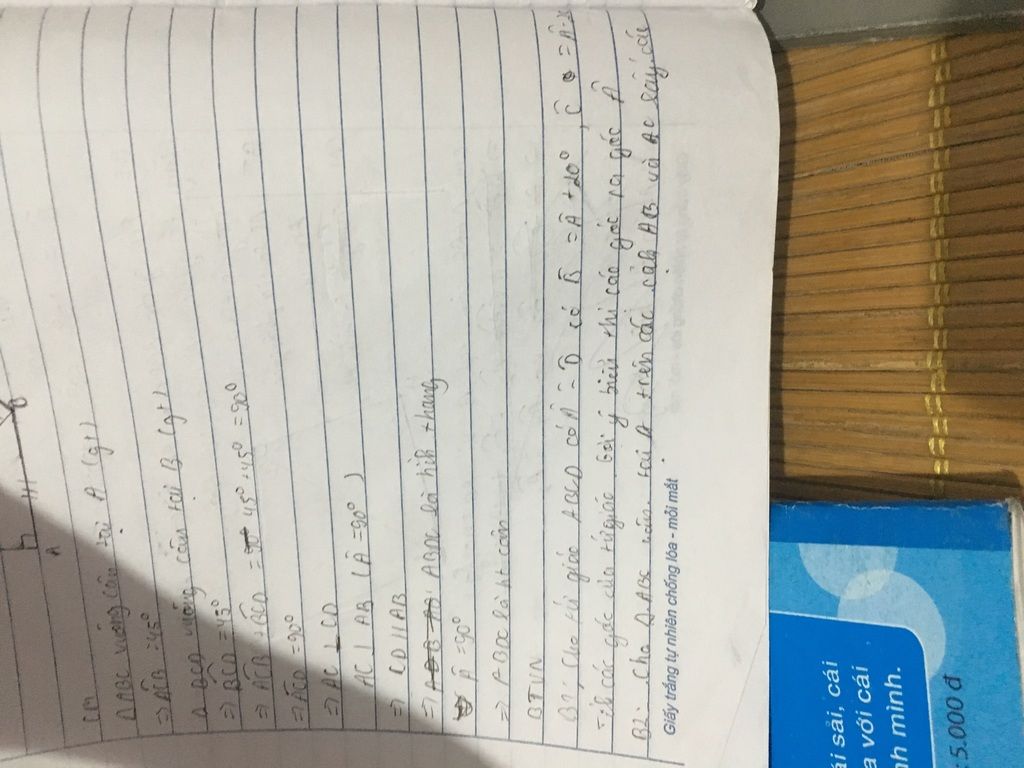 A
B
CM
Δ ABC vuông cân tại A (gt)
=> ACB = 45°
Δ BCD vuông cân tại B (gt)
=> BCD = 45°
=> ACB + BCD = 45° + 45° = 90°
=> ACD = 90°
=> AC ⊥ CD
AC ⊥ AB (Â = 90°)
=> CD // AB
=> ABDC là hìh thang
Â = 90°
=> ABDC là ht
BTVN
B1: Cho tứ giác ABCD có B̂ = Â + 20°, Ĉ = Â
các góc của tứ giác Gợi ý biểu thị các góc góc Â
B2: Cho Δ ABC tại A trên các cạh AB và AC lấy các
Giấy trắng tự nhiên chống lóa - mỏi mắt
ái sải, cái
a với cái
nh mình.
: 5.000 đ